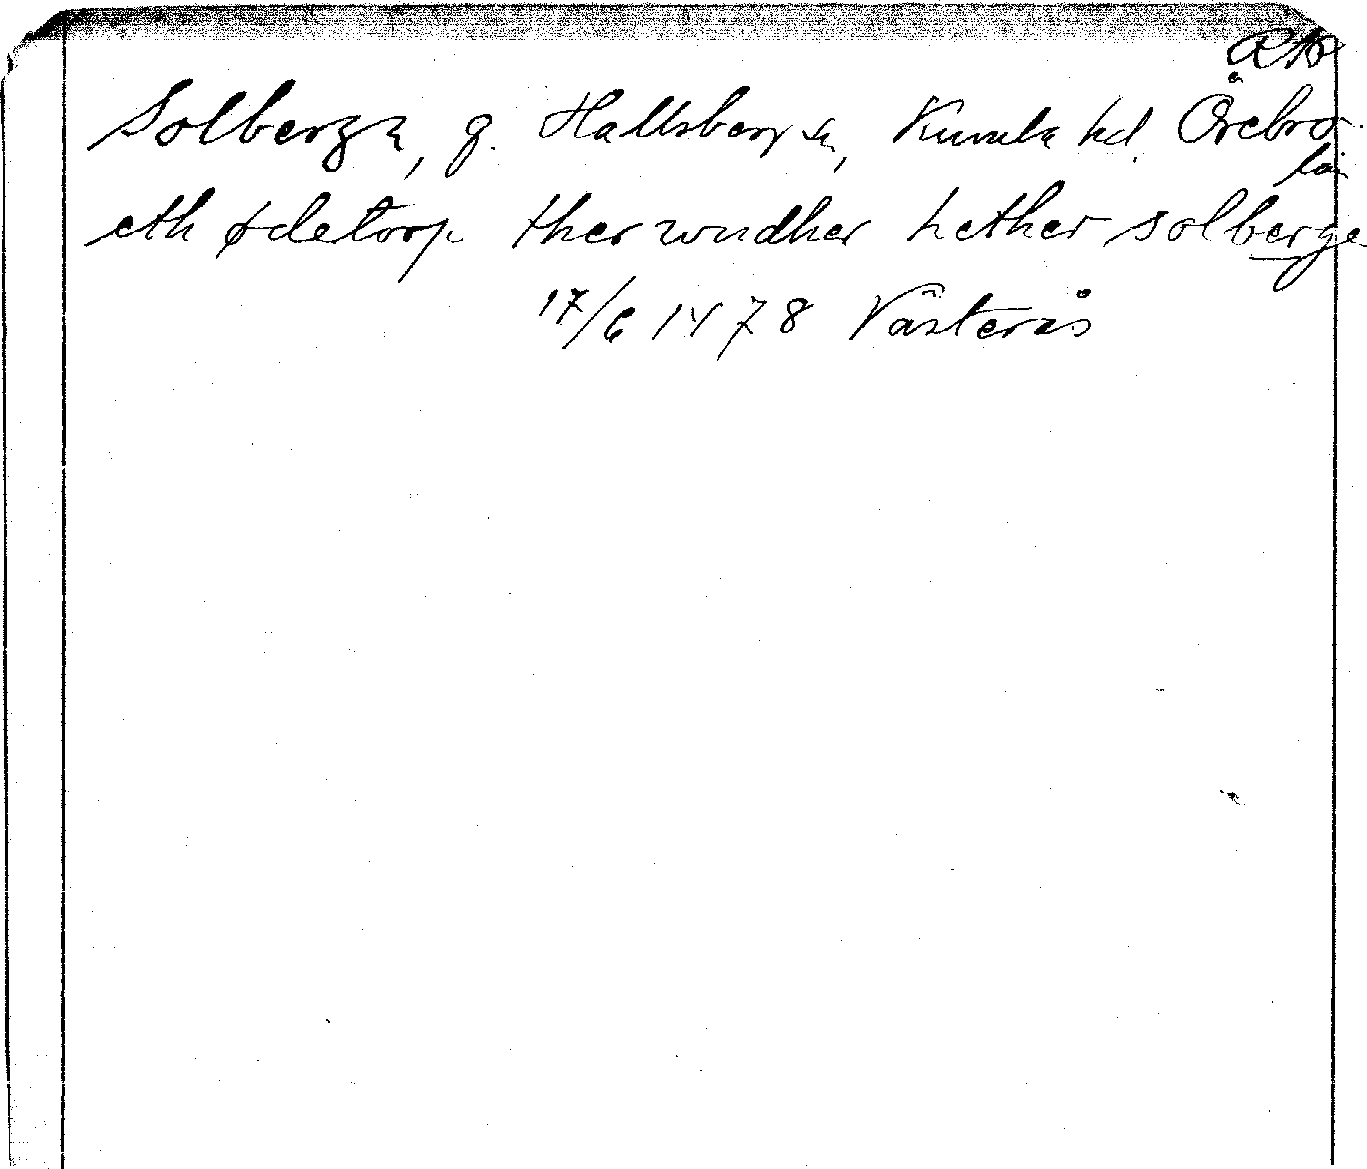 RAp
Solberga, g. Hallsberg sn, Kumla hd, Örebro
län
eth ødetorp ther wndher hether solberge
17/6 1478 Västerås